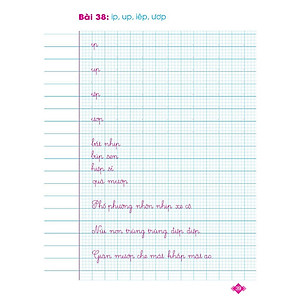 Bài 38: ip, up, iêp, ươp
ip
up
iêp
ươp
bắt nhịp
búp sen
hiệp sĩ
quả mướp
Phố phường nhộn nhịp xe cộ.
Núi non trùng trùng điệp điệp.
Giàn mướp che mát khắp mặt ao.